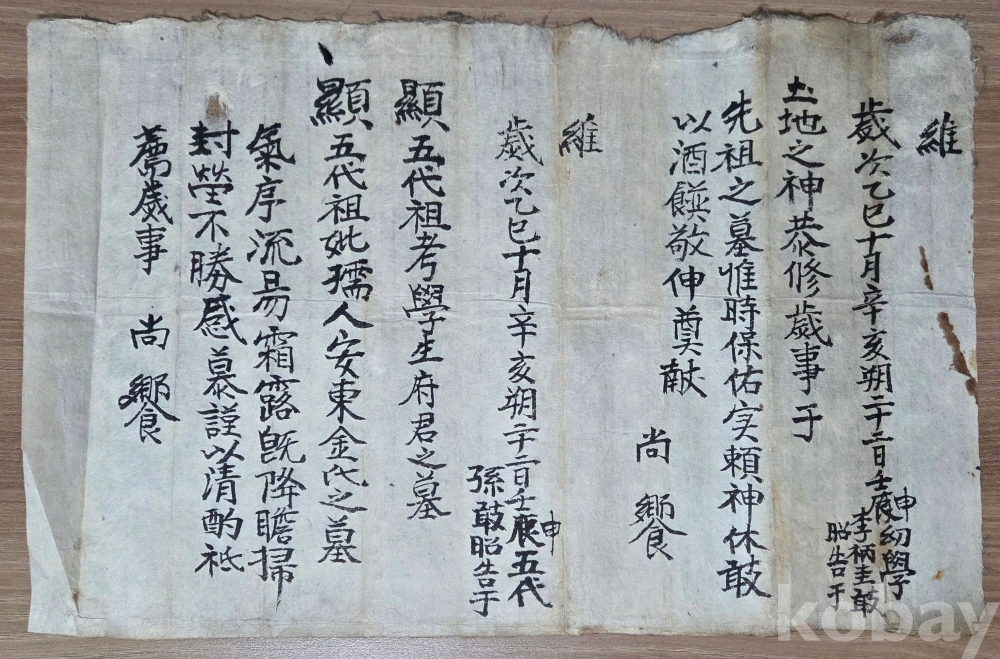 維
歲次乙巳十月辛亥朔二十二日壬申幼學
李柄圭敢
昭告于
土地之神恭修歲事于
先祖之墓惟時保佑实賴神休敢
以酒饌敬伸奠献
尚饗
維
歲次乙巳十月辛亥朔二十二日壬申五代
孫敢昭告于
顯五代祖考學生府君之墓
顯五代祖妣孺人安東金氏之墓
氣序流易霜露旣降瞻掃
封塋不勝感慕謹以清酌祗
薦歲事 尚饗
kobay